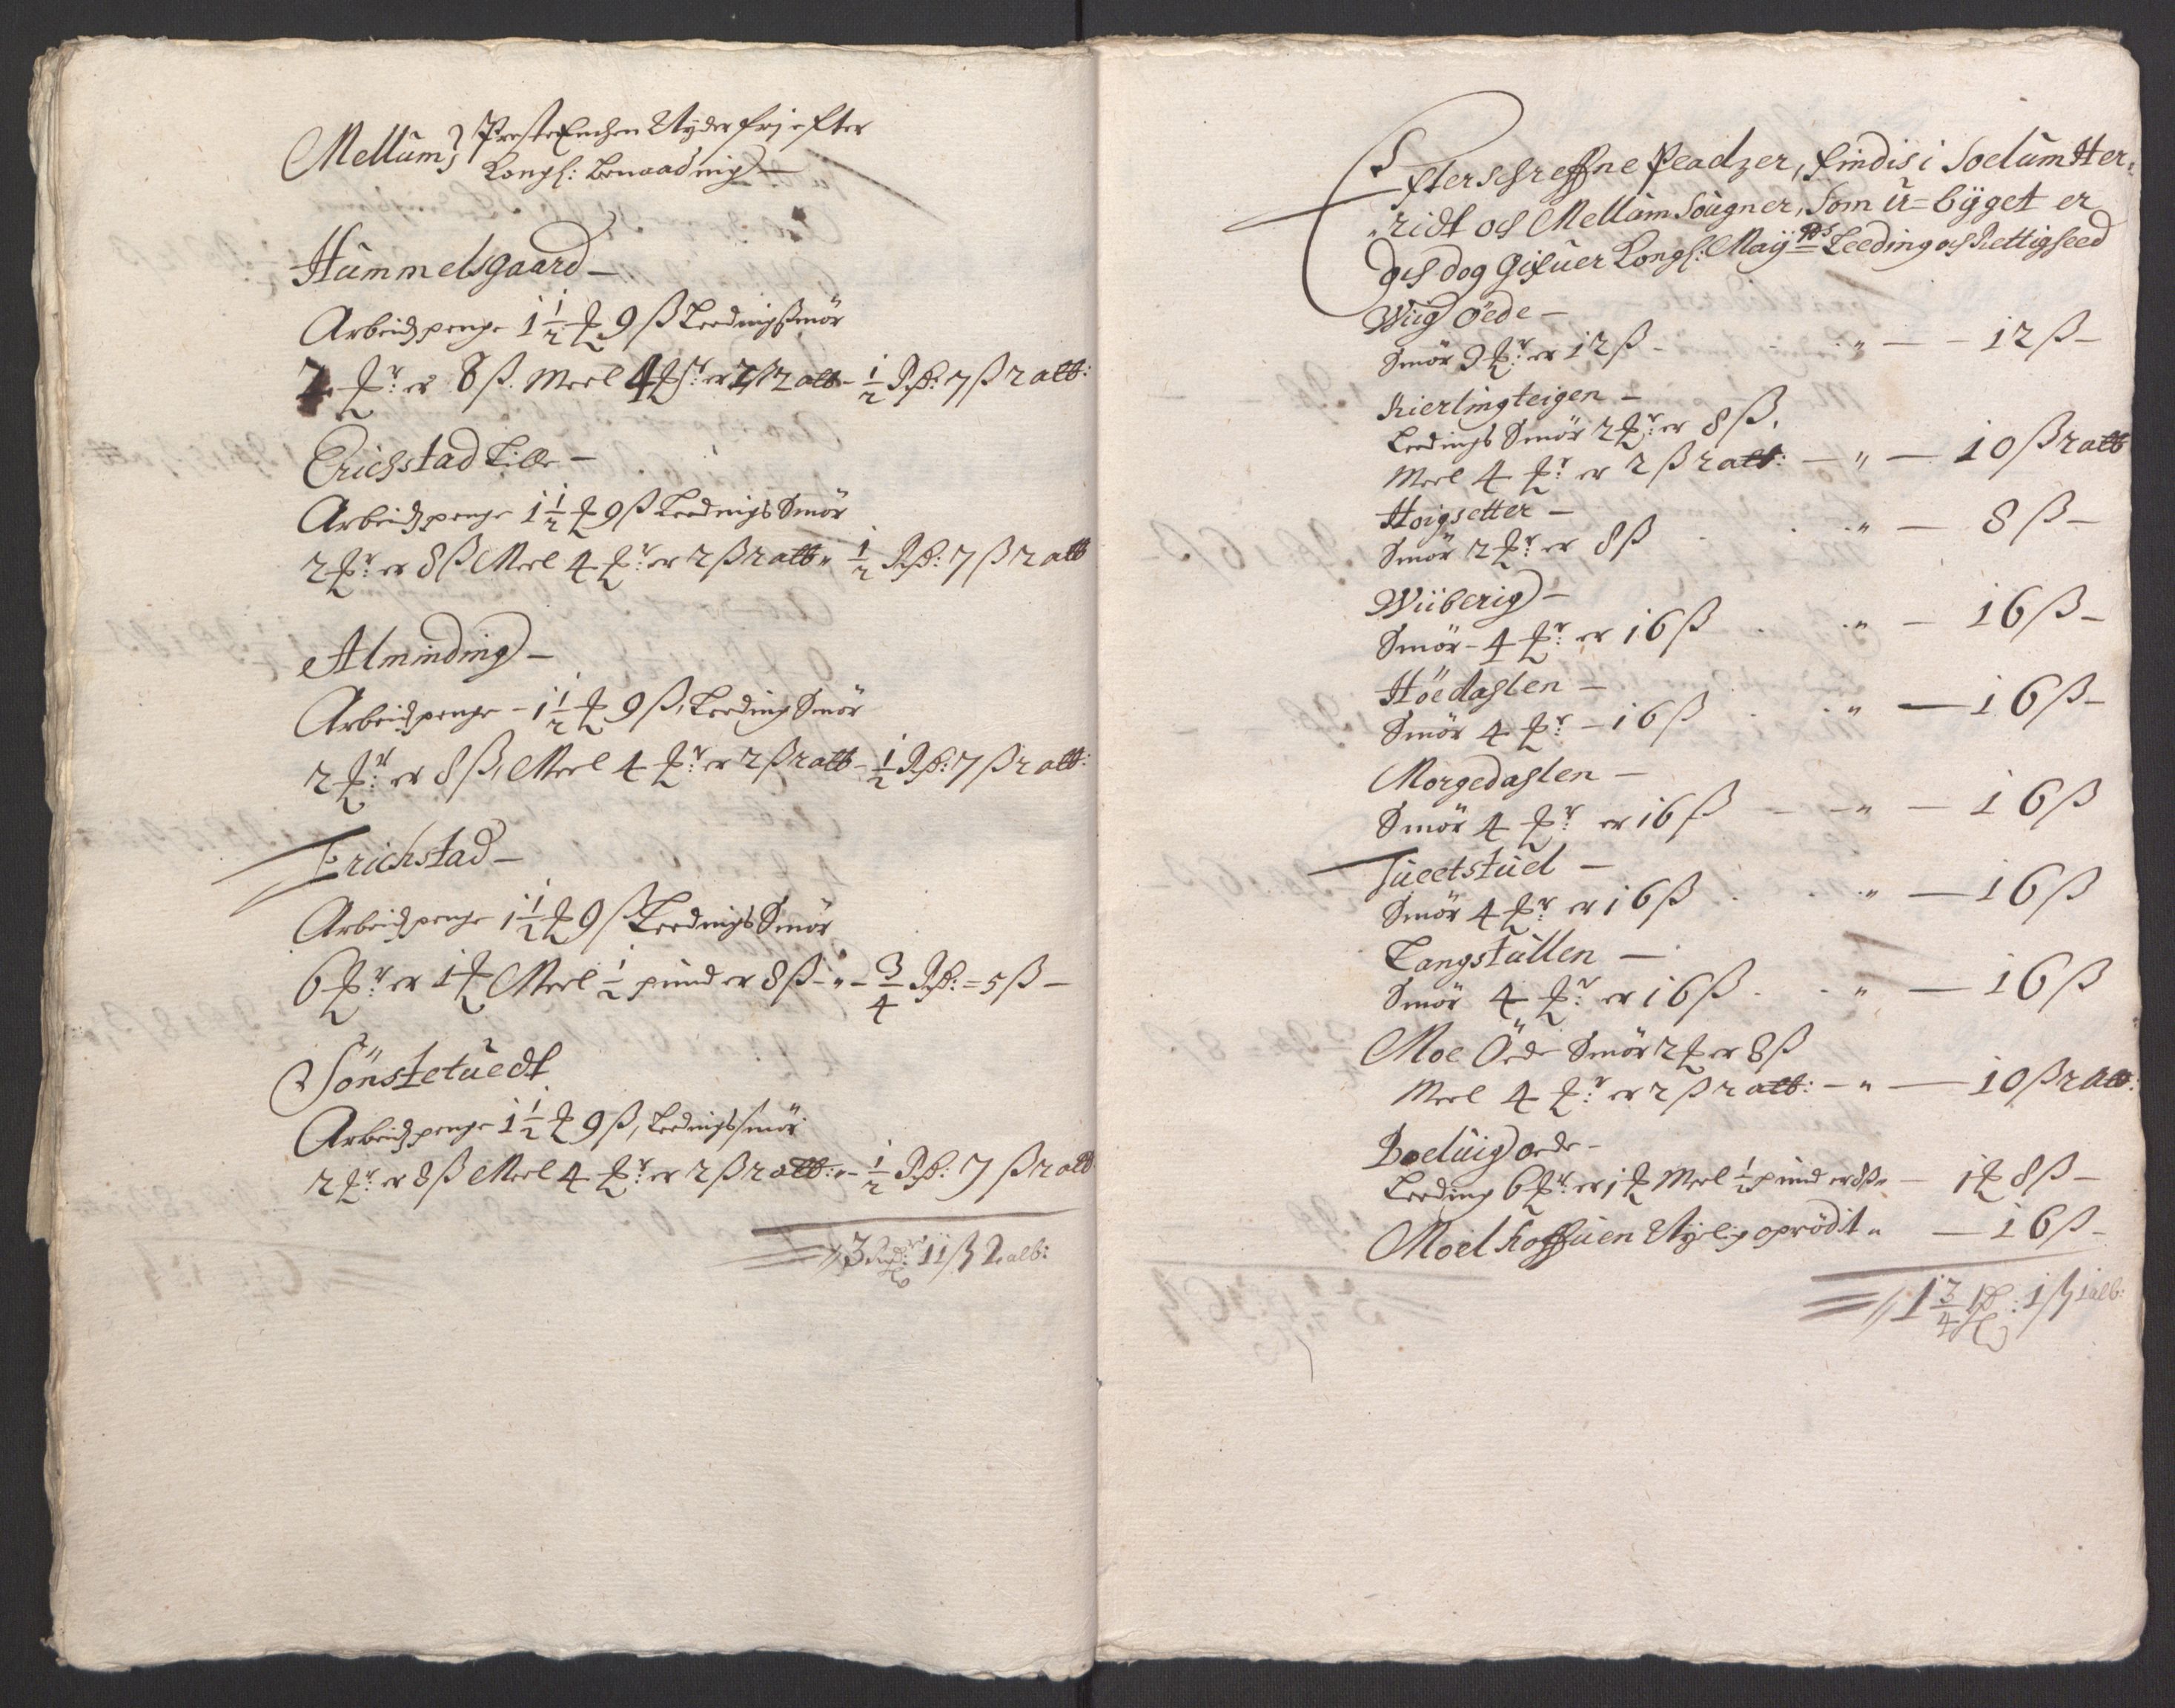 Mellum, Presteenchen Nyder frj efter
Kongl: benaadnig —
Hümmelsgaard —
Arbeidzpenge 1 1/2 ℔ 9 ß Ledingßmör
2 ℔r: er 8 ß. Meel 4 ℔r: er 2 ß 2 alb - 1/2 Rd: 7 ß 2 alb:
Erichstad Lille —
Arbeidzpenge 1 1/2 ℔ 9 ß Ledings Smör
2 ℔r: er 8 ß Meel 4 ℔r: er 2 ß 2 alb " 1/2 Rd: 7 ß 2 alb
Alminding —
Arbeidzpenge - 1 1/2 ℔ 9 ß, Leding Smör
2 ℔r: er 8 ß, Meel 4 ℔r: er 2 ß 2 alb - 1/2 Rd: 7 ß 2 alb:
Erichstad —
Arbeidzpenge 1 1/2 ℔ 9 ß Ledings Smör
6 ℔r: er 1 ℔ Meel 1/2 pund er 8 ß - " - 3/4 Rd: = 5 ß —
Sönstetuedt
Arbeidzpenge 1 1/2 ℔ 9 ß, Ledings smör
2 ℔r: er 8 ß Meel 4 ℔r: er 2 ß 2 alb: " - 1/2 Rd: 7 ß 2 alb
3 Rd: 11 ß 2 alb:
Efterschreffne Peadzer, findis i Soelüm Her=
ridt och Mellüm Sougner, Som ü=byget er
och dog gifuer Kongl: Maytz Leeding och Rettigheed
Wiig öede —
Smör 3 ℔r: er 12 ß - " — - 12 ß —
Kierlingteigen —
Ledings Smör 2 ℔r: er 8 ß,
Meel 4 ℔r: er 2 ß 2 alb: — " — 10 ß 2 alb
Hoigsetter —
Smör 2 ℔r: er 8 ß " — 8 ß —
Wiiberig —
Smör - 4 ℔r: er 16 ß " — 16 ß —
Höedahlen —
Smör 4 ℔r: - 16 ß " — 16 ß —
Morgedahlen —
Smör 4 ℔r: er 16 ß — " — 16 ß
Tueetstuel —
Smör 4 ℔r: er 16 ß " — 16 ß
Langstüllen —
Smör 4 ℔r: er 16 ß " — 16 ß
Moe Öede Smör 2 ℔ er 8 ß
Meel 4 ℔r: er 2 ß 2 alb: — " — 10 ß 2 alb:
Boelüig öede —
Leeding 6 ℔r: er 1 ℔ Meel 1/2 pund er 8 ß " — 1 ℔ 8 ß —
Moelhoffuen Nyelig oprödit " — 16 ß —
1 3/4 Rd: 1 ß 1 alb: